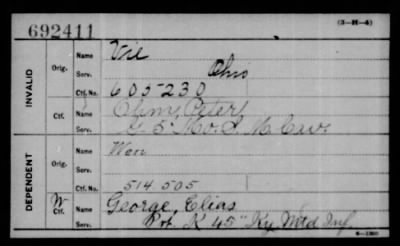 692411
(3-H-4)
INVALID
Orig.
Name
Vil
Serv.
Ohio
Ctf. No.
605-230
Ctf.
Name
Ohm, Peter
Serv.
G 5" Mo. S. M. Cav.
DEPENDENT
Orig.
Name
Wen
Serv.
Ctf. No.
514.505
W
Ctf.
Name
George, Elias
Serv.
Pvt. K 45" Ky Mtd Inf